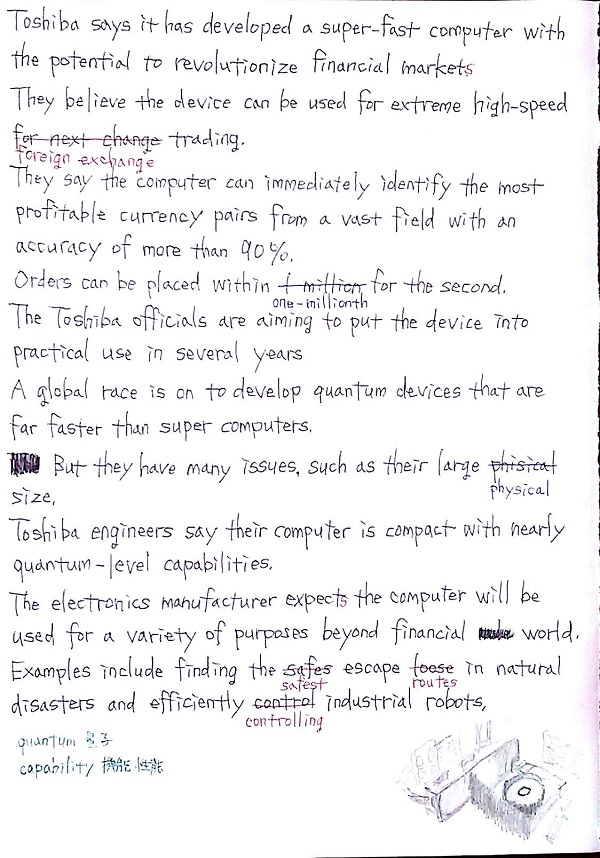 Toshiba says it has developed a super-fast computer with
the potential to revolutionize financial markets
They believe the device can be used for extreme high-speed
for next change trading.
foreign exchange
They say the computer can immediately identify the most
profitable currency pairs from a vast field with an
accuracy of more than 90%.
Orders can be placed within 1 million for the second.
one-millionth
The Toshiba officials are aiming to put the device into
practical use in several years
A global race is on to develop quantum devices that are
far faster than super computers.
But they have many issues, such as their large phisical
physical
size,
Toshiba engineers say their computer is compact with nearly
quantum-level capabilities.
The electronics manufacturer expects the computer will be
used for a variety of purposes beyond financial world.
Examples include finding the safes escape loose in natural
safest routes
disasters and efficiently control industrial robots,
controlling
quantum 量子
capability 機能 性能